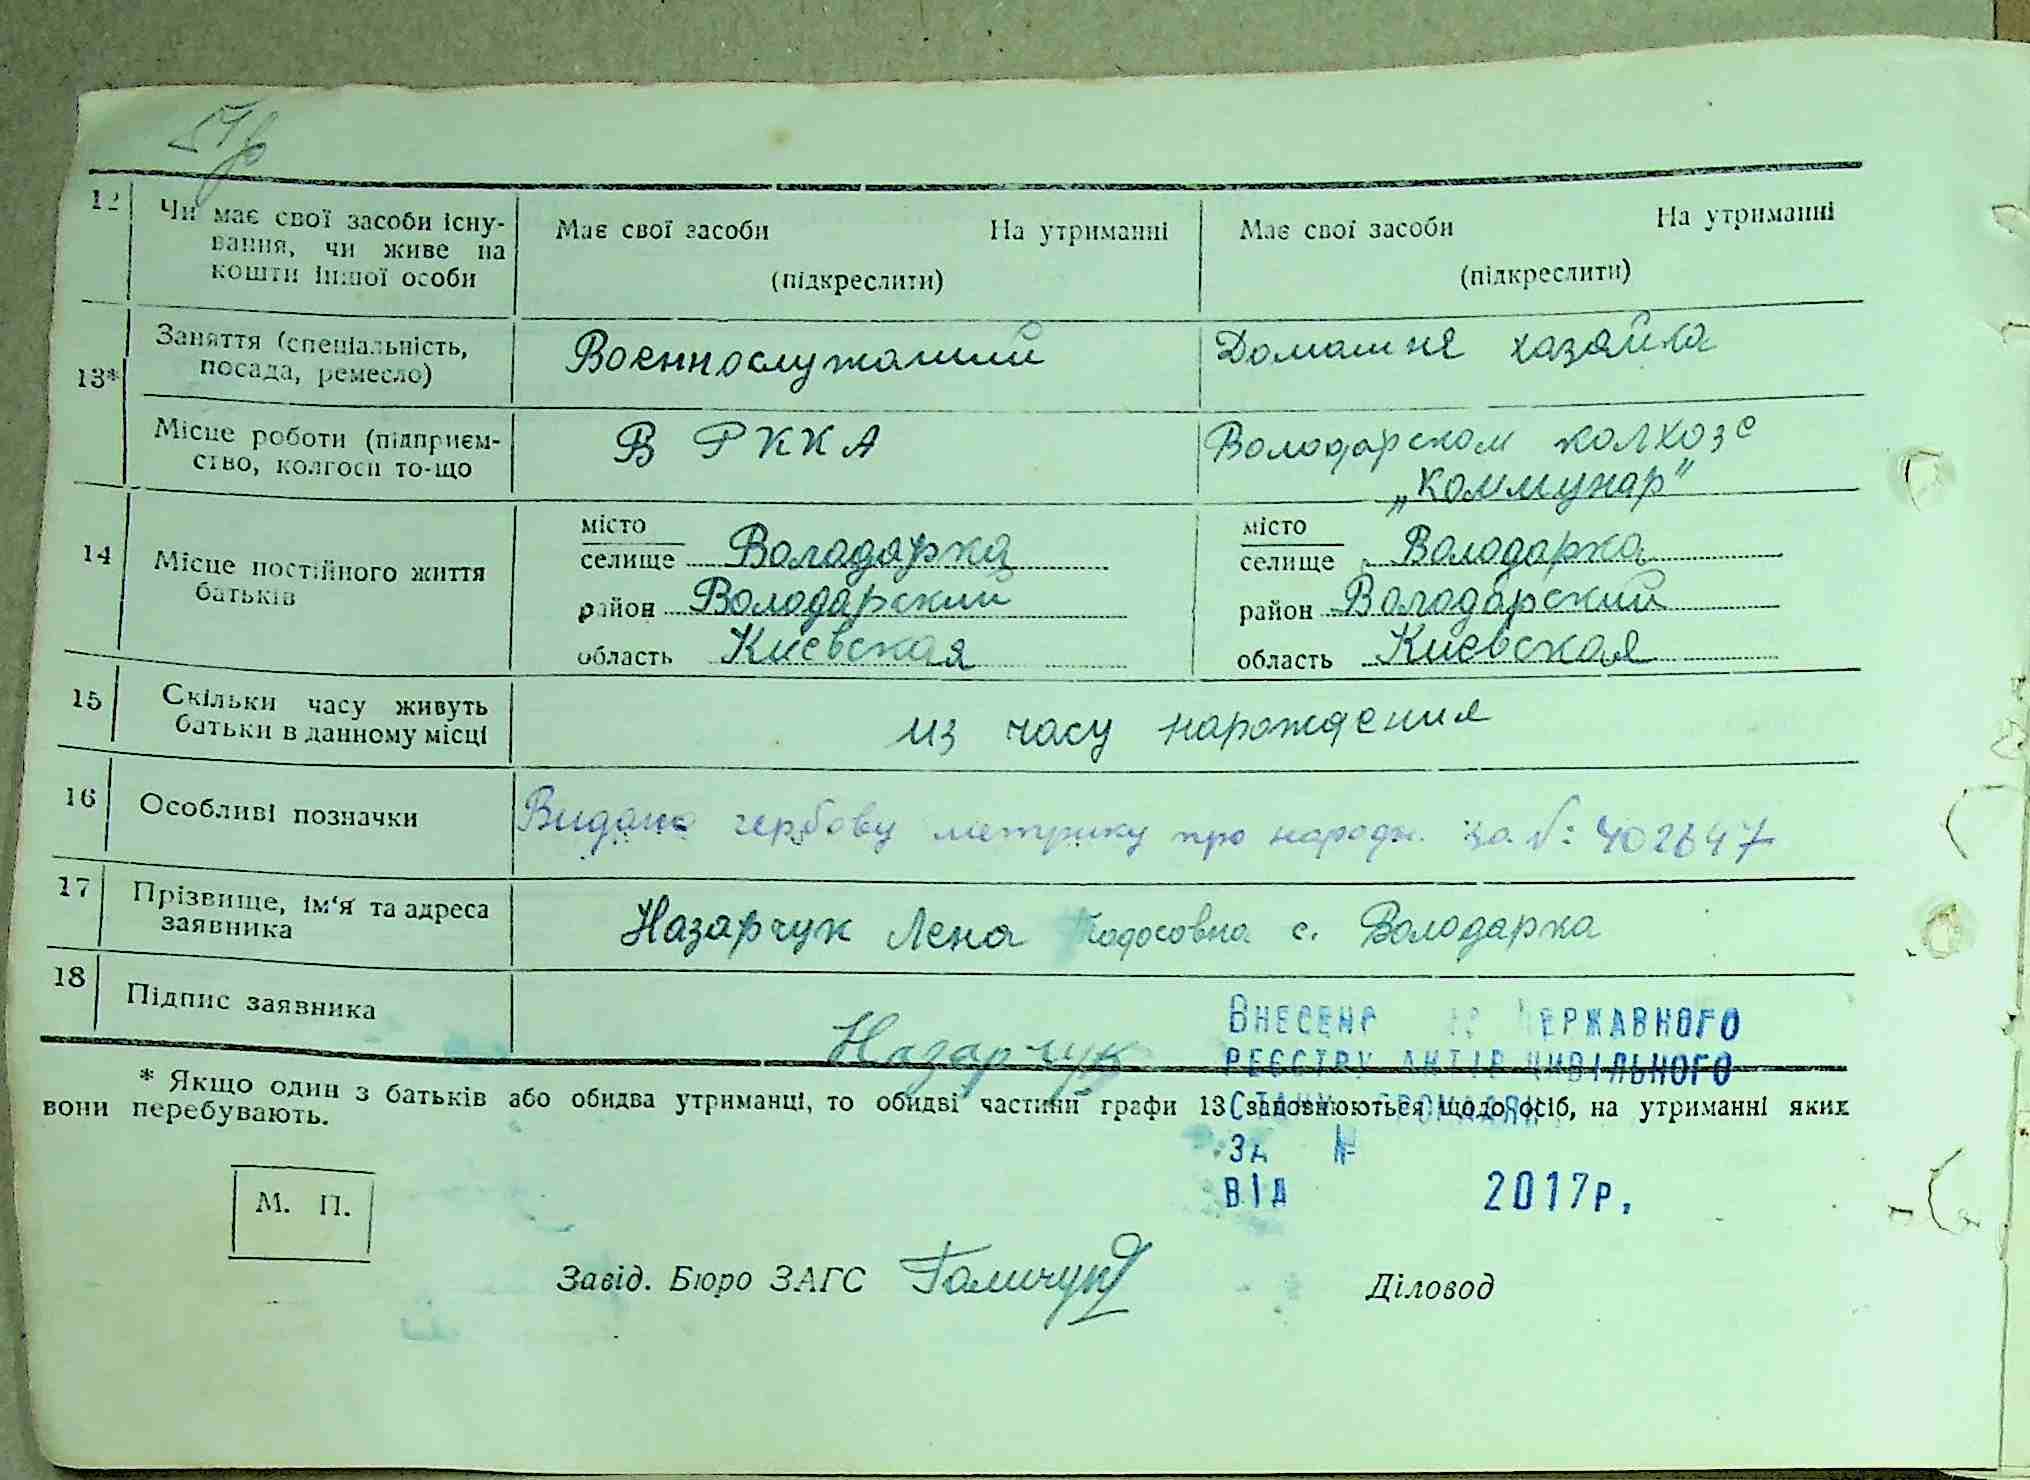 12 Чи має свої засоби існу-
вання, чи живе на
кошти іншої особи
Має свої засоби На утриманні
(підкреслити)
Має свої засоби На утриманні
(підкреслити)
13* Заняття (спеціальність,
посада, ремесло)
Воєннослужащий
Домашня хазяйка
Місце роботи (підприєм-
ство, колгосп то-що
В РККА
Володарском колхозе
„Коммунар"
14 Місце постійного життя
батьків
місто
селище Володарка
район Володарский
область Киевская
місто
селище Володарка
район Володарский
область Киевская
15 Скільки часу живуть
батьки в данному місці
из часу нарождения
16 Особливі позначки
Видано гербову метрику про народж. за №: 402647
17 Прізвище, ім'я та адреса
заявника
Назарчук Лена Тодосовна с. Володарка
18 Підпис заявника
Назарчук
ВНЕСЕНО ДО ДЕРЖАВНОГО
РЕЄСТРУ АКТІВ ЦИВІЛЬНОГО
СТАНУ ГРОМАДЯН
ЗА №
ВІД 2017р.
* Якщо один з батьків або обидва утриманці, то обидві частини графи 13 заповнюються щодо осіб, на утриманні яких
вони перебувають.
М. П.
Завід. Бюро ЗАГС
Діловод